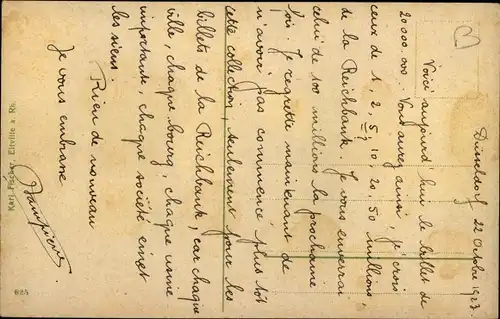 Düsseldorf 22 Octobre 1923
Voici aujourd'hui le billet de
20 000.000. Vous avez ainsi, je crois
ceux de 1, 2, 5, 10, 20, 50 millions,
de la Reichbank. Je vous enverrai
celui de 100 millions la prochaine
fois. Je regrette maintenant de
n'avoir pas commencé plus tôt
cette collection, seulement pour les
billets de la Reichbank, car chaque
ville, chaque bourg, chaque usine
importante, chaque société émet
les siens.
Rien de nouveau
Je vous embrasse
Karl Fischer, Eltville a. Rh.
624